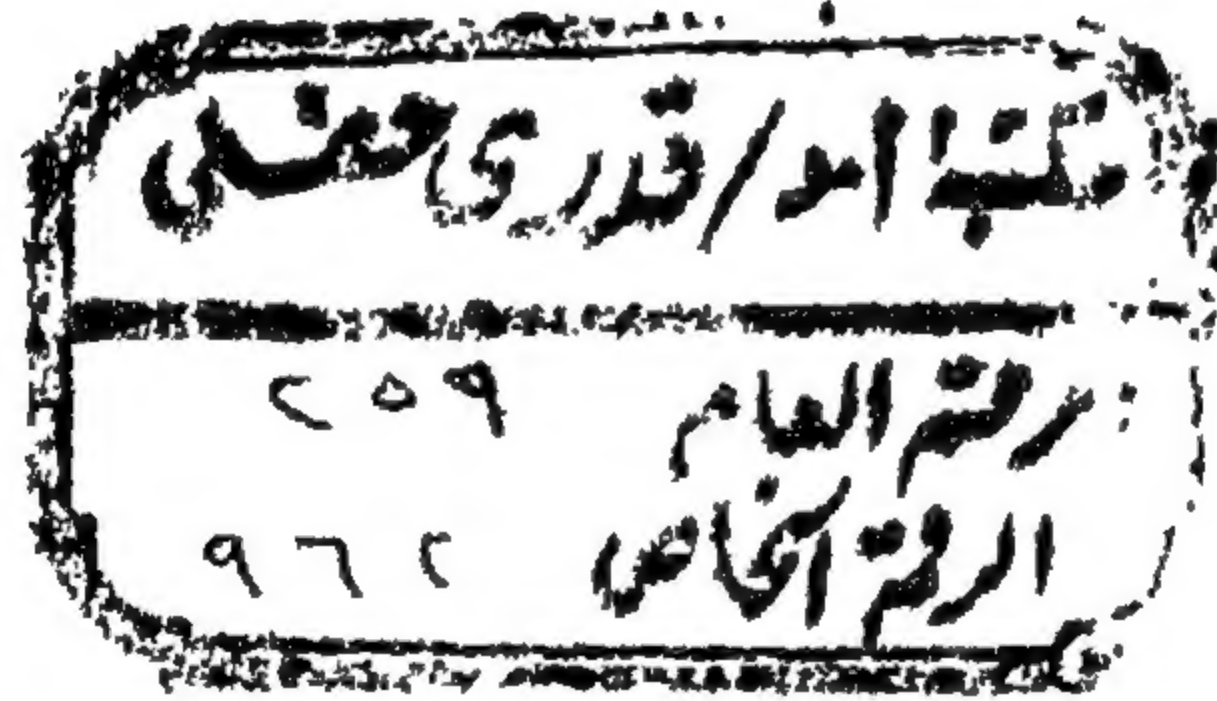 مكتبة ا.د/قدرى حفنى
رقم العام ٢٥٩
الرقم الخاص ٩٦٢